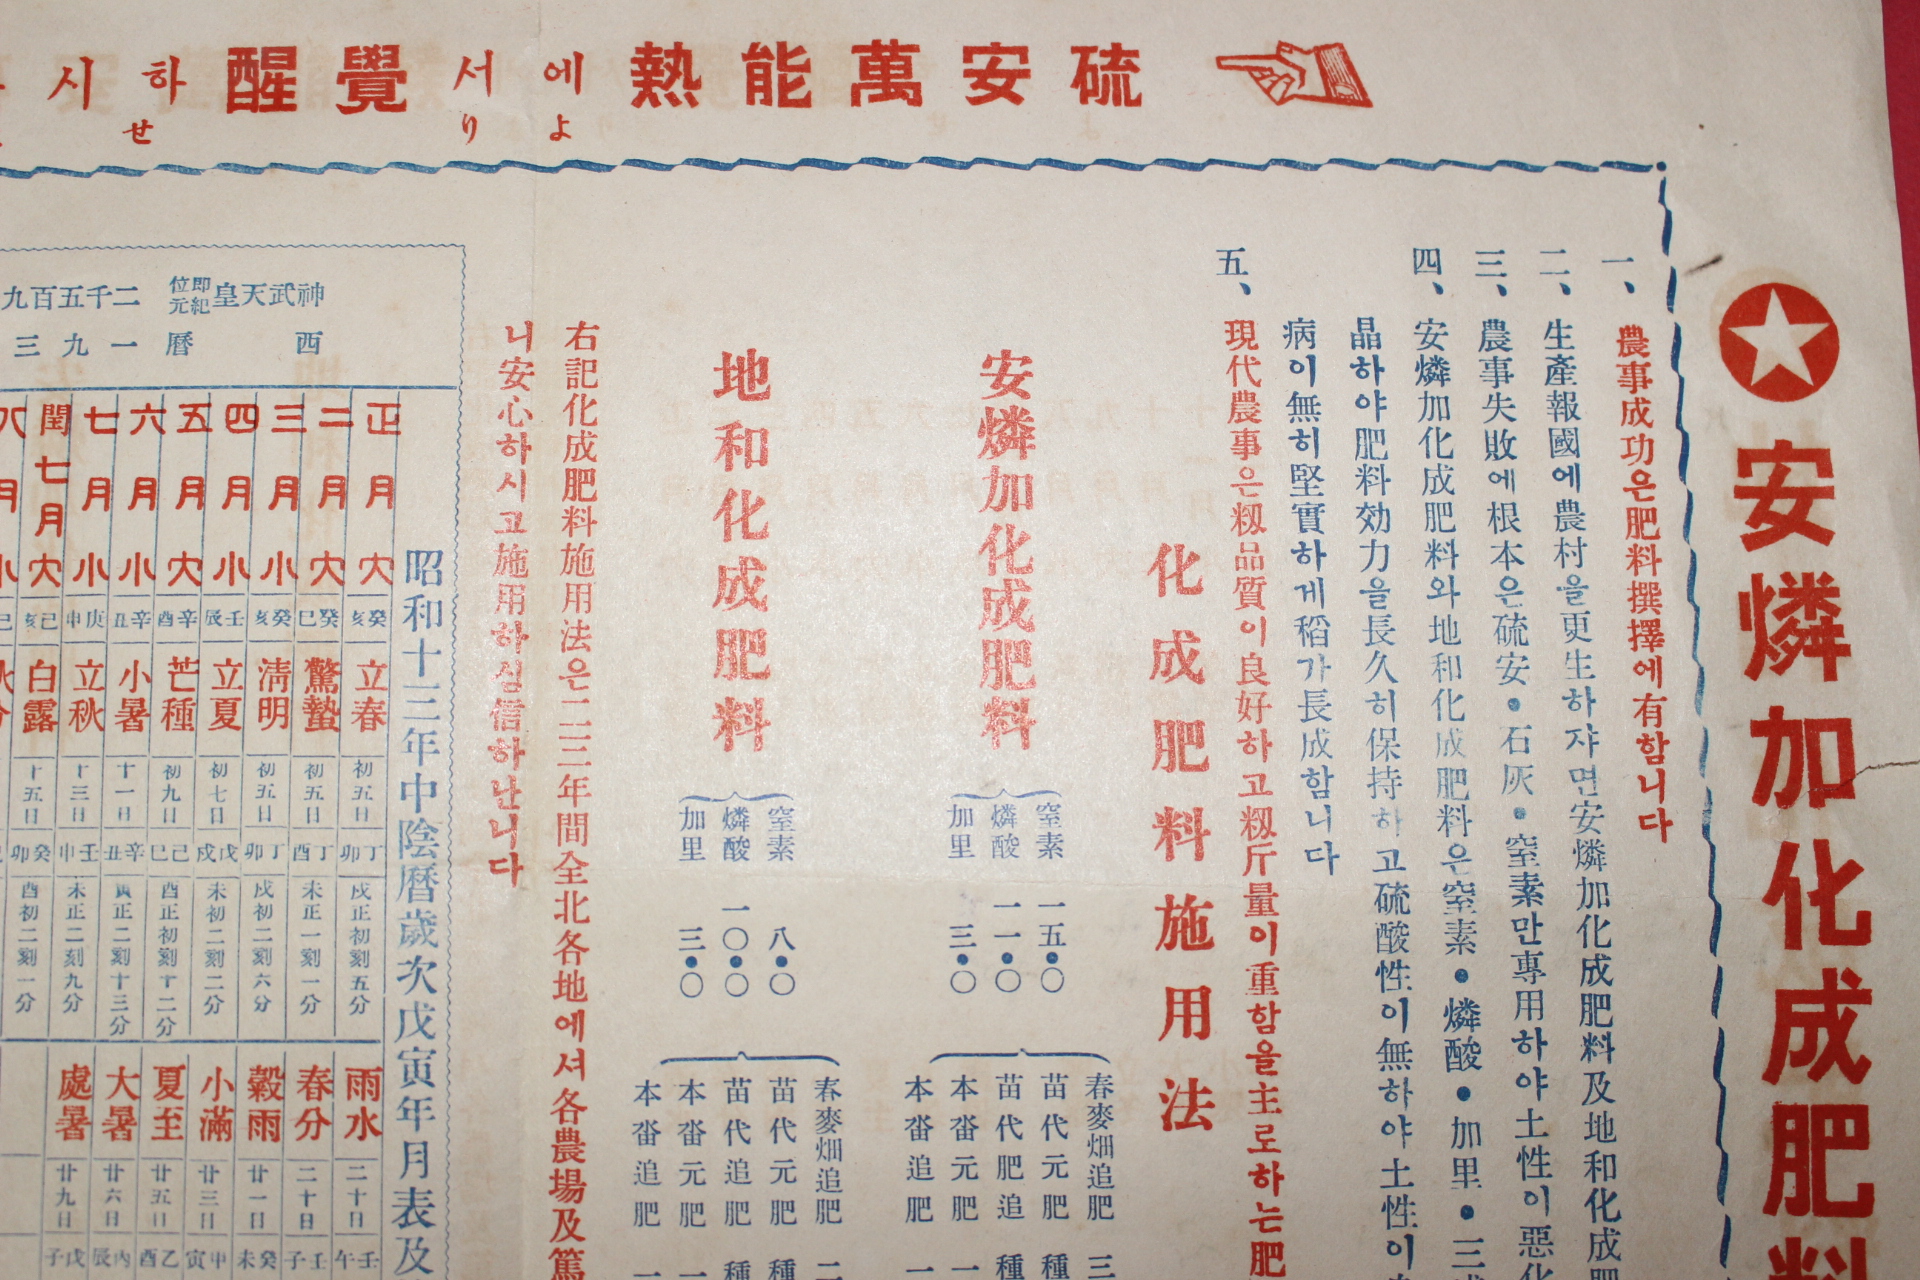 硫安萬能熱에서覺醒하시
よりせ
安燐加化成肥料
一、農事成功은肥料撰擇에有함니다
二、生產報國에農村을更生하자면安燐加化成肥料及地和化成肥
三、農事失敗에根本은硫安•石灰•窒素만專用하야土性이惡化
四、安燐加化成肥料와地和化成肥料은窒素•燐酸•加里•三
晶하야肥料効力을長久히保持하고硫酸性이無하야土性이
病이無히堅實하게稻가長成함니다
五、現代農事은籾品質이良好하고籾斤量이重함을主로하는肥
化成肥料施用法
安燐加化成肥料
窒素 一五•〇
燐酸 一一•〇
加里 三•〇
春麥畑追肥 三
苗代元肥 種
苗代肥追 種
本畓元肥 一
本畓追肥 一
地和化成肥料
窒素 八•〇
燐酸 一〇•〇
加里 三•〇
春麥畑追肥 二
苗代元肥 種
苗代追肥 種
本畓元肥 一
本畓追肥 一
右記化成肥料施用法은二三年間全北各地에셔各農場及篤
니安心하시고施用하심信하난니다
神武天皇即位紀元二千五百九
西曆一九三
昭和十三年中陰曆歲次戊寅年月表及
正月大 癸亥 立春 初五日 丁卯 戌正初刻五分 雨水 二十日 壬午
二月大 癸巳 驚蟄 初五日 丁酉 未正一刻一分 春分 二十日 壬子
三月小 癸亥 淸明 初五日 丁卯 戌初二刻六分 穀雨 廿一日 癸未
四月小 壬辰 立夏 初七日 戊戌 未初二刻二分 小滿 廿三日 甲寅
五月大 辛酉 芒種 初九日 己巳 酉正初刻十二分 夏至 廿五日 乙酉
六月小 辛丑 小暑 十一日 辛丑 寅正二刻十三分 大暑 廿六日 丙辰
七月小 庚申 立秋 十三日 壬申 未正二刻九分 處暑 廿九日 戊子
閏七月大 己亥 白露 十五日 癸卯 酉初二刻一分
八月小